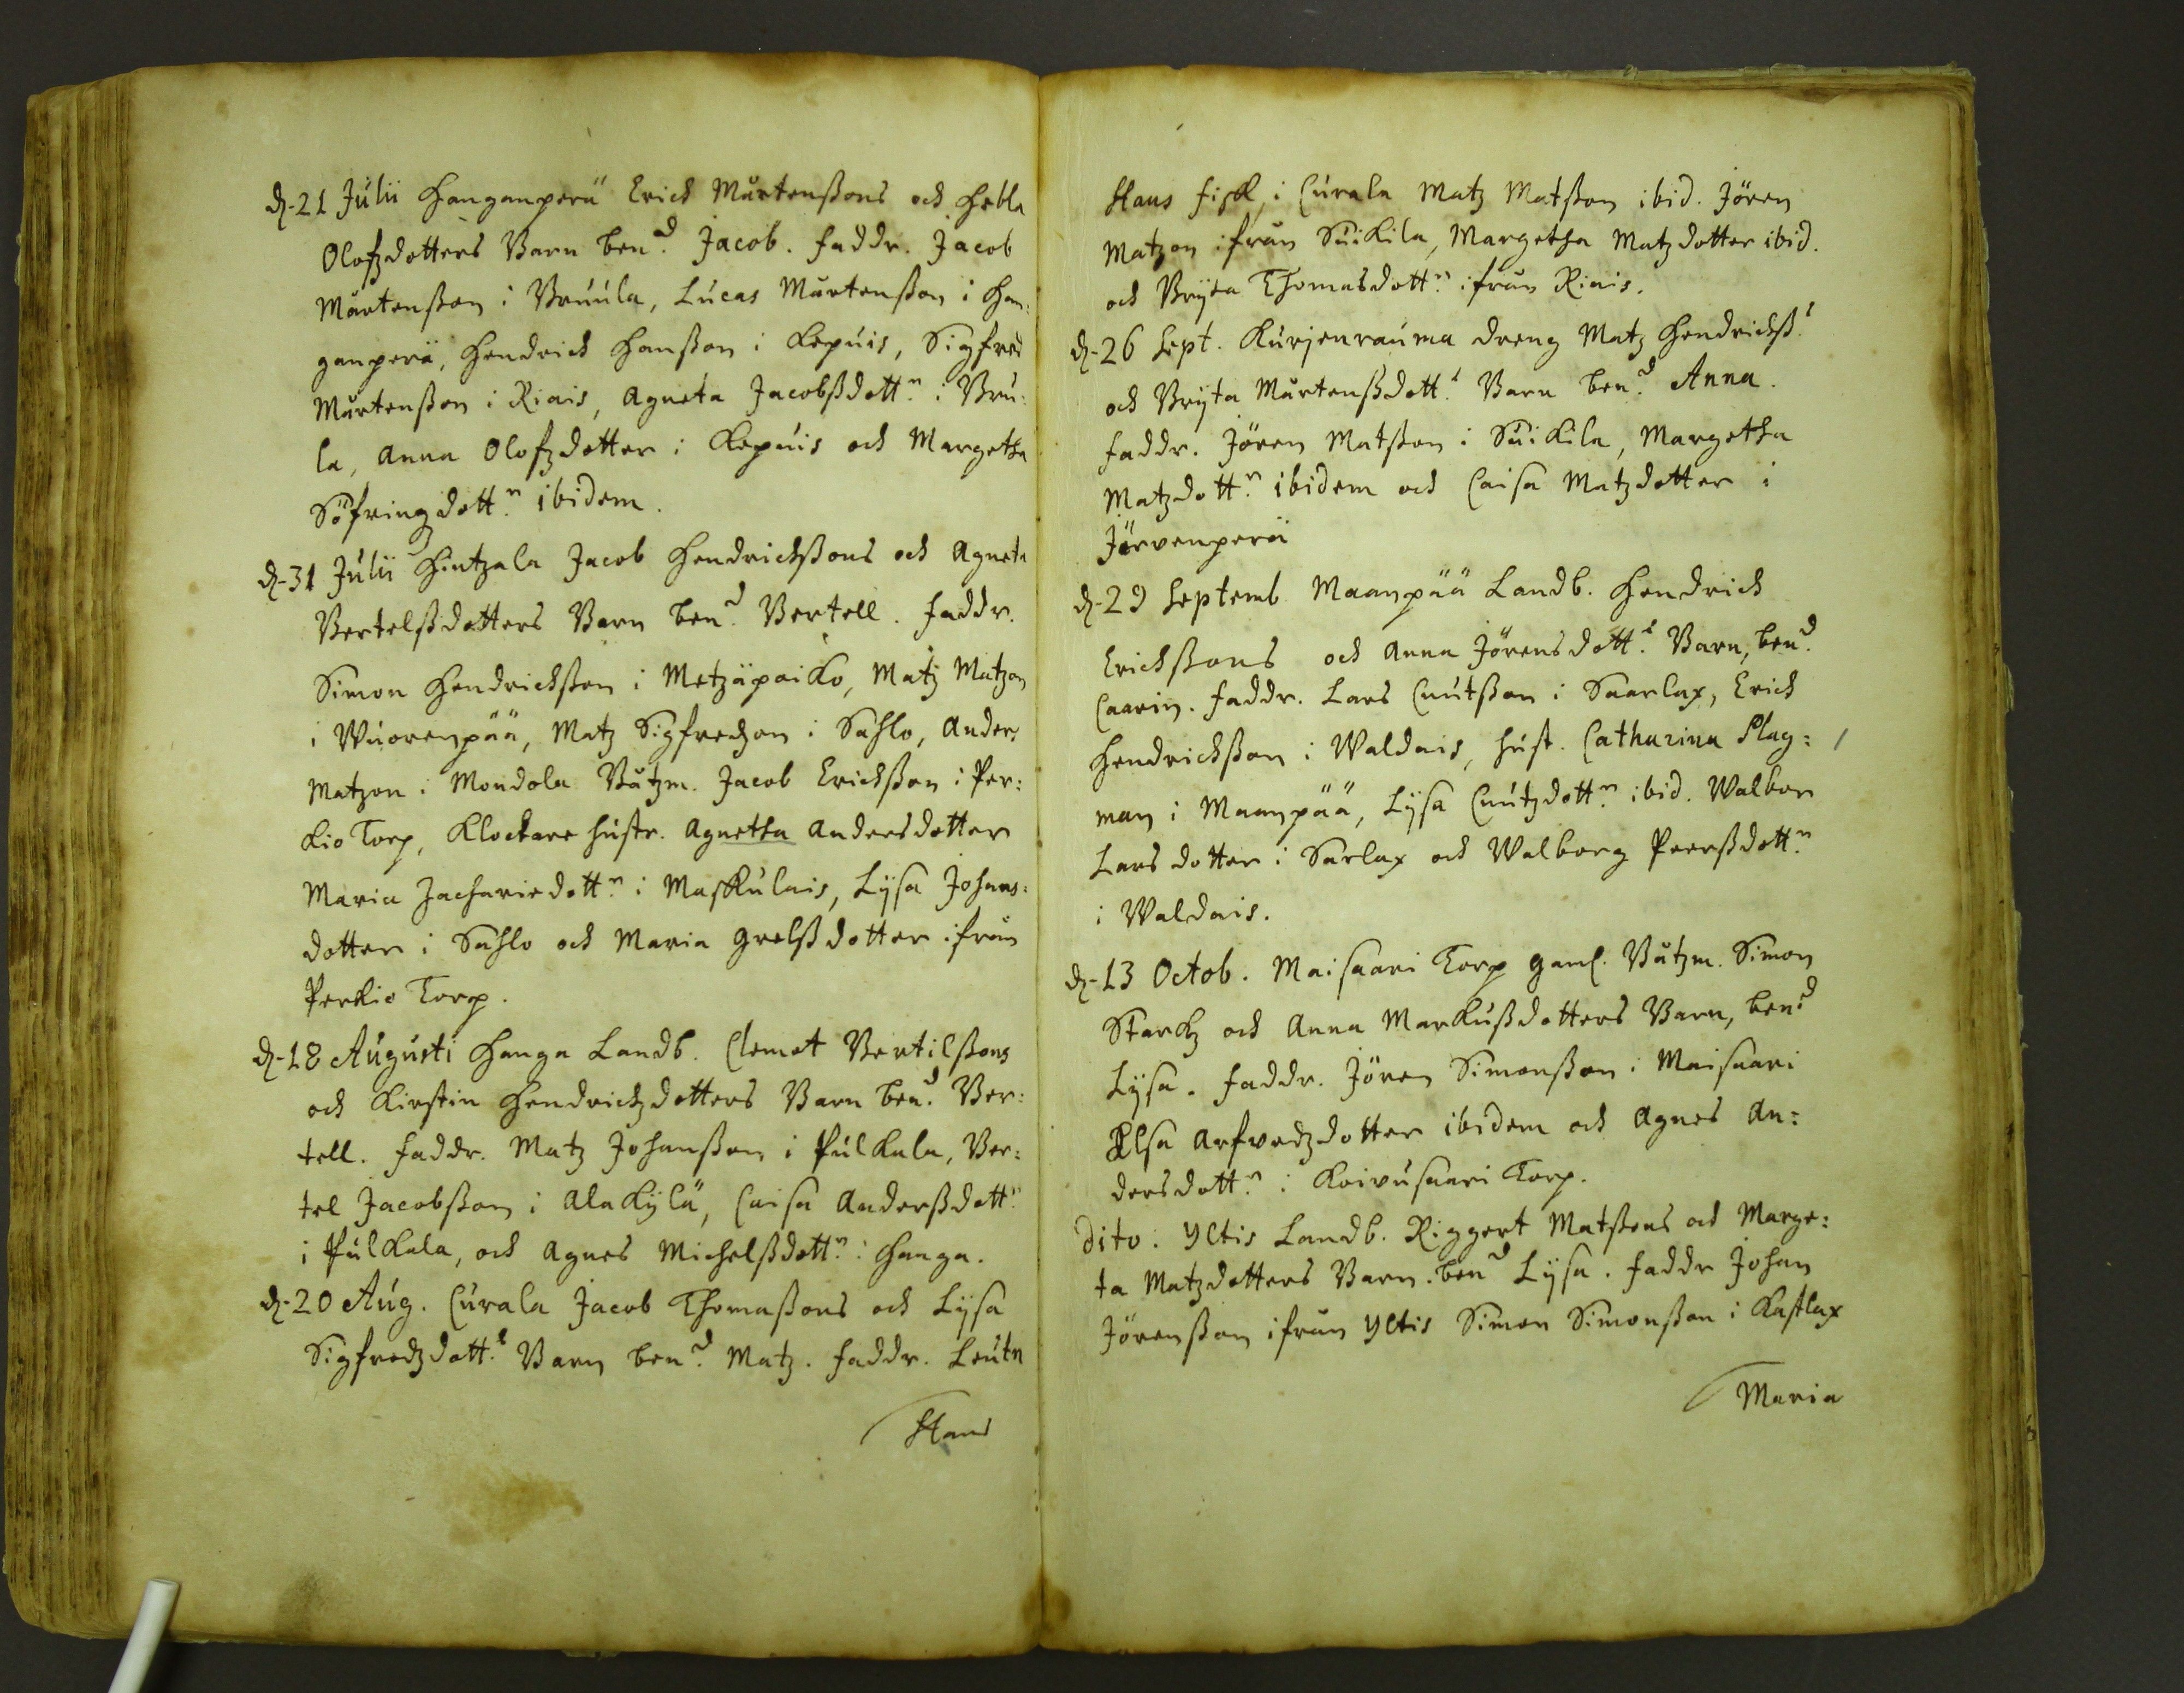 d. 21 Julii Hanganperä Erick Mårtenßons och Hebla
Olofzdotters Barn ben.d Jacob. faddr. Jacob
Mårtenßon i Bruula, Lucas Mårtenßon i Han:
ganperä, Hendrich Hanßon i Kepuis, Sigfred
Mårtenßon i Riais, Agneta Jacobßdott.r i Bru:
la, Anna Olofzdotter i Kepuis och Margetha
Söfringdott.r ibidem.
d. 31 Julii Hintzala Jacob Hendrichßons och Agneta
Bertelßdotters Barn ben.d Bertell. faddr.
Simon Hendrichßon i Metzäpaiko, Matz Matzon
i Wuorenpää, Matz Sigfredzon i Sahlo, Anders
Matzon i Mondola Båtzm. Jacob Erichßon i Per:
kio Torp, Klockare hustr. Agnetha Andersdotter
Maria Zachariedott.r i Maskulais, Lysa Johans:
dotter i Sahlo och Maria Grelßdotter ifrån
Perkio Torp.
d. 18 Augusti Hanga Landb. Clemet Bertilßons
och Kirstin Hendrichzdotters Barn ben.d Ber:
tell. faddr. Matz Johanßon i Pulkala, Ber:
tel Jacobßon i Alakylä, Caisa Anderßdott.r
i Pulkala, och Agnes Michelßdott.r i Hanga.
d. 20 Aug. Curala Jacob Thomaßons och Lysa
Sigfredzdott.s Barn ben.d Matz. faddr. Leutn
Hans
Hans fisk i Curala Matz Matßon ibid. Jören
Matzon ifrån Suikila, Margetha Matzdotter ibid.
och Bryta Thomasdott.r ifrån Riais.
d. 26 Sept. Kurjenrauma dreng Matz Hendrichß.s
och Bryta Mårtenßdott.s Barn ben.d Anna.
faddr. Jören Matßon i Suikila, Margetha
Matzdott.r ibidem och Caisa Matzdotter i
Järvenperä
d. 29 Septemb Maanpää Landb. Hendrich
Erichßons och Anna Jörensdott.s Barn, ben.d
Caarin. faddr. Lars Cnutßon i Saarlax, Erich
Hendrichßon i Waldais, hust. Catharina Plag:
man i Maanpää, Lysa Cnutzdott.r ibid. Walbor
Larsdotter i Sarlax och Walborg Peerßdott.r
i Waldais.
d. 13 Octob. Maisaari Torp gaml. Båtzm. Simon
Starck och Anna Markußdotters Barn, ben.d
Lysa. faddr. Jören Simonßon i Maisaari
Elsa Arfvedzdotter ibidem och Agnes An:
dersdott.r i Koivusaari Torp.
Dito. Yltis Landb. Riggert Matßons och Marge:
ta Matzdotters Barn. ben.d Lysa. faddr Johan
Jörenßon ifrån Yltis Simon Simonßon i Kastlax
Maria